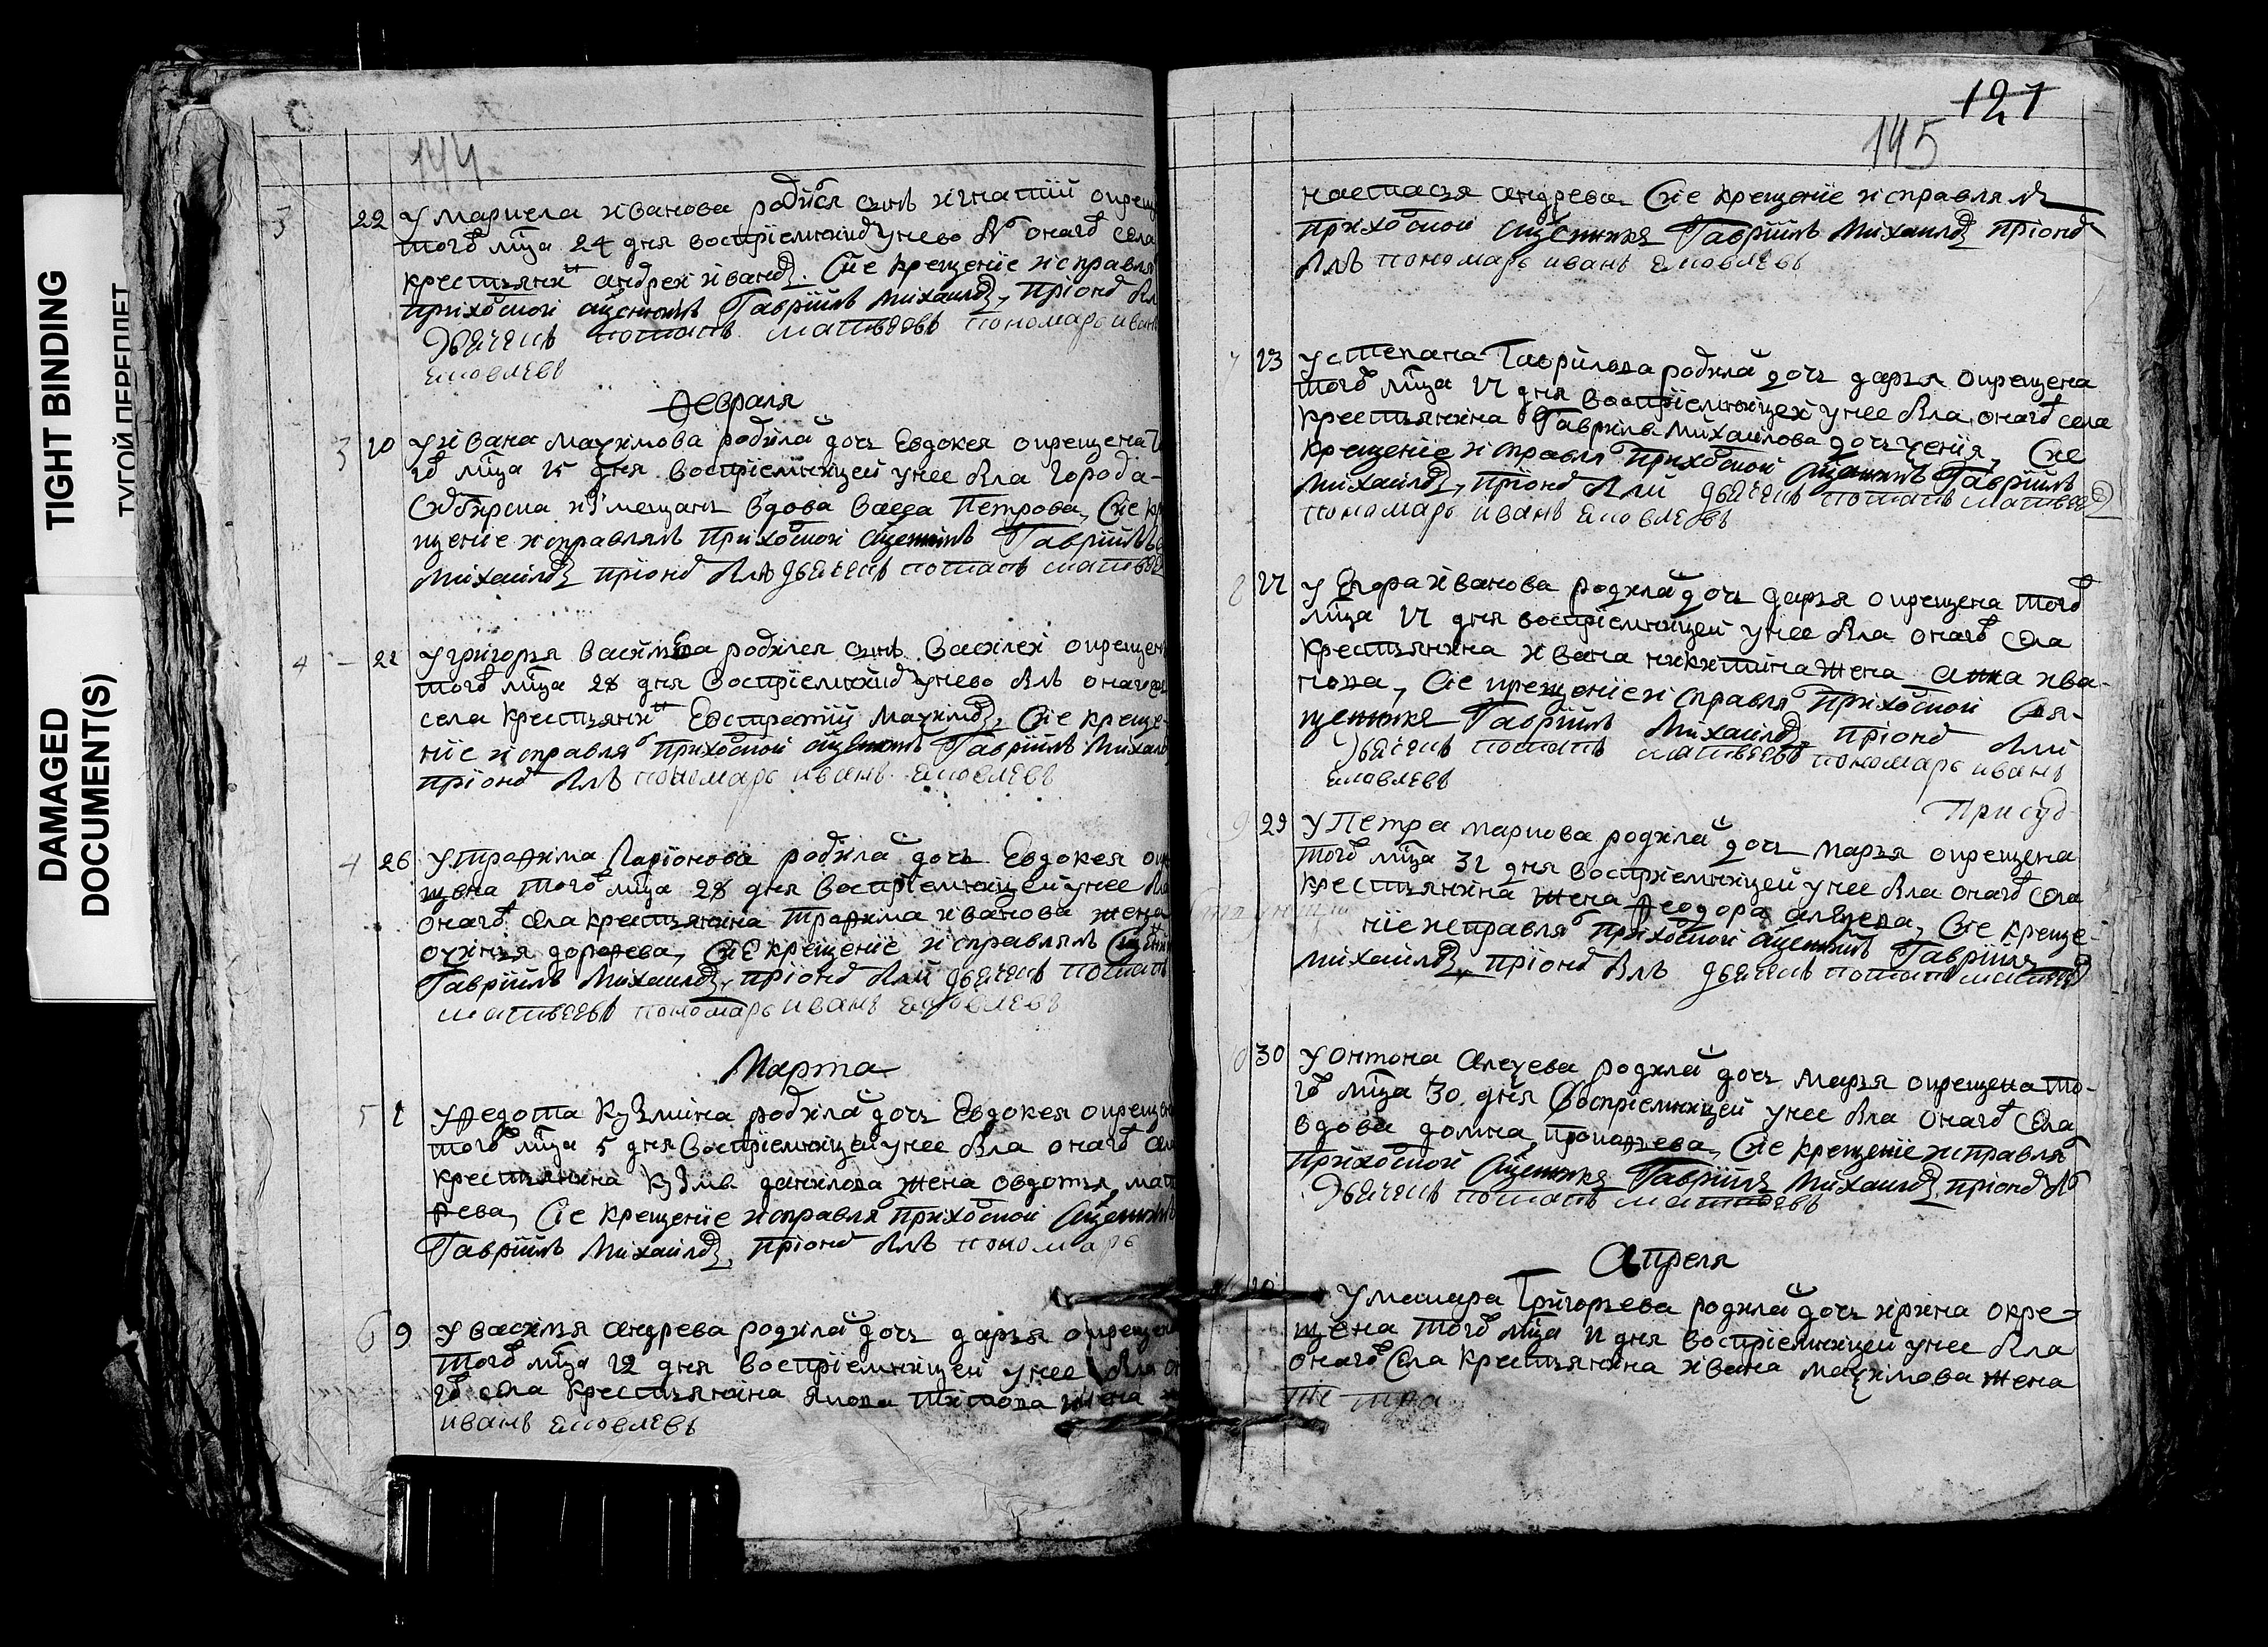 TIGHT BINDING
ТУГОЙ ПЕРЕПЛЕТ
DAMAGED
DOCUMENT(S)
144
3 22 У Маркела Иванова родился сынъ Игнатiй окрещ
того мца 24 дня воспрiемникъ у нево былъ онаго села
крестьянинъ андрей ивановъ. Сие крещенiе исправля
приходской сщенникъ Гаврiилъ Михаиловъ, при ономъ былъ
дьячекъ потапъ матвеевъ пономарь иванъ
яковлевъ
Февраля
3 20 У ивана Маѯимова родилась дочь Евдокея окрещена то
го мца 25 дня воспрiемницей у нее была города
Сибирска из мещанъ вдова Васса Петрова, Сие кр
щенiе исправлялъ приходской сщенникъ Гаврiилъ
Михаиловъ при ономъ былъ дьячекъ потапъ матвеев
4 – 22 У григорья василева родился сынъ Василей окрещен
того мца 28 дня воспрiемникъ у нево былъ онаго
села крестьянинъ Евстратiй Маѯимовъ, Сие креще-
нiе исправлялъ приходской сщенникъ Гаврiилъ Михаило
при ономъ былъ пономарь иванъ яковлевъ
4 26 У трафима Ларiонова родилась дочь Евдокея окре
щена того мца 28 дня воспрiемницей у нее была
онаго села крестьянина трафима иванова жена
дорафева, Сие крещенiе исправлялъ Сщенникъ
Гаврiилъ Михаиловъ, при ономъ были дьячекъ потапъ
матвеевъ пономарь иванъ яковлевъ
Марта
5 1 У федота Кузмина родилась дочь Евдокея окрещена
того мца 5 дня воспрiемницей у нее была онаго села
крестьянина Кузмы данилова жена овдотья мат
фева, Сие крещенiе исправлялъ приходской Сщенникъ
Гаврiилъ Михаиловъ, при ономъ былъ пономарь
6 9 У василья андрева родилась дочь дарья окрещена
того мца 12 дня воспрiемницей у нее была она
го села крестьянина якова титова жена
иванъ яковлевъ
121
145
настасья андрева Сие крещенiе исправлялъ
приходской сщенникъ Гаврiилъ Михаиловъ при ономъ
былъ пономарь иванъ яковлевъ
7 23 У степана Гаврилова родилась дочь дарья окрещена
того мца 27 дня воспрiемницей у нее была онаго села
крестьянина Гаврила Михаилова дочь Сие
крещенiе исправлялъ приходской сщенникъ Гаврiилъ
Михаиловъ, при ономъ были дьячекъ потапъ матвеевъ
пономарь иванъ яковлевъ
8 27 У Егора иванова родилась дочь дарья окрещена того
мца 27 дня воспрiемницей у нее была онаго села
крестьянина ивана никитина жена анна ива-
нова, Сие крещенiе исправлялъ приходской Свя-
щенникъ Гаврiилъ Михаиловъ при ономъ были
дьячекъ потапъ матвеевъ пономарь иванъ
яковлевъ
При суд
9 29 У Петра маркова родилась дочь марья окрещена
того мца 31 дня воспрiемницей у нее была онаго села
крестьянина жена феодора алеѯева, Сие креще-
нiе исправлялъ приходской сщенникъ Гаврiилъ
михаиловъ при ономъ былъ дьячекъ потапъ матвеевъ
30 У онтона Алеѯева родилась дочь марья окрещена то-
го мца 30 дня Воспрiемницей у нее была онаго села
вдова домна прокофьева, Сие крещенiе исправлялъ
приходской Сщенникъ Гаврiилъ Михаиловъ при ономъ былъ
дьячекъ потапъ матвеевъ
Апреля
У макара Григорьева родилась дочь ирина окре-
щена того мца 11 дня воспрiемницей у нее была
онаго села крестьянина ивана маѯимова жена